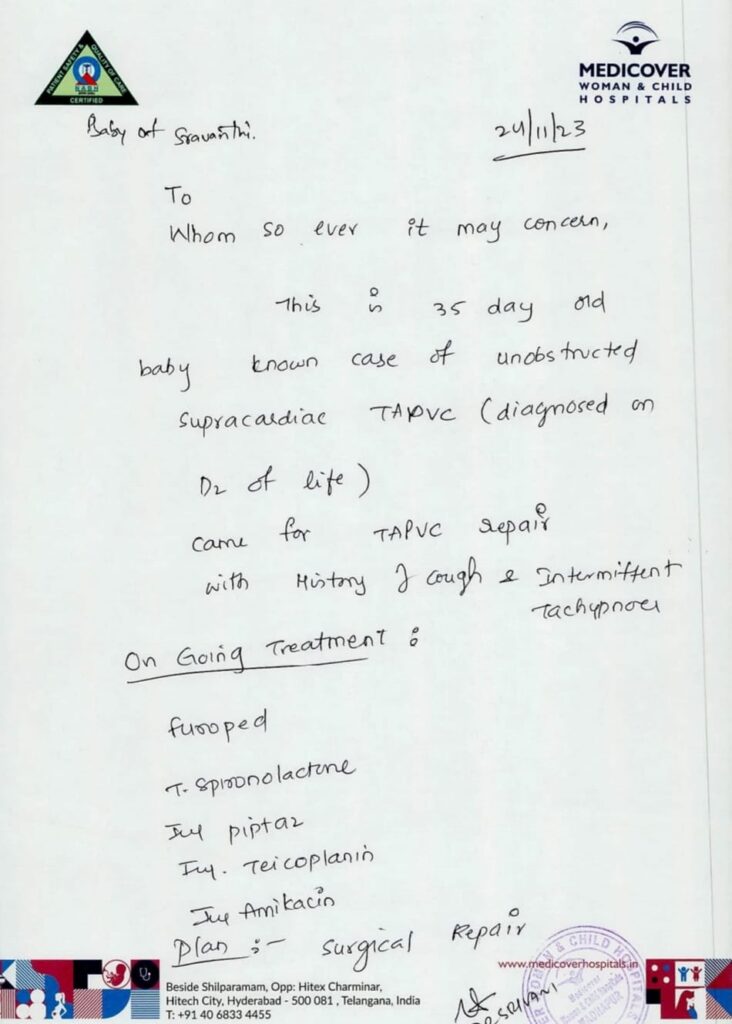 PATIENT SAFETY & QUALITY OF CARE
NABH
CERTIFIED
MEDICOVER
WOMAN & CHILD
HOSPITALS
Baby of Sravanthi.
24/11/23
To
Whom so ever it may concern,
This is 35 day old
baby known case of unobstructed
supracardiac TAPVC (diagnosed on
D2 of life)
came for TAPVC repair
with History of cough & Intermittent
Tachypnoea
On Going Treatment :
furoped
T. Spironolactone
Inj piptaz
Inj. Teicoplanin
Inj Amikacin
Plan :- Surgical Repair
www.medicoverhospitals.in
Beside Shilparamam, Opp: Hitex Charminar,
Hitech City, Hyderabad - 500 081 , Telangana, India
T: +91 40 6833 4455
DR. SRIVANI
WOMAN & CHILD HOSPITALS